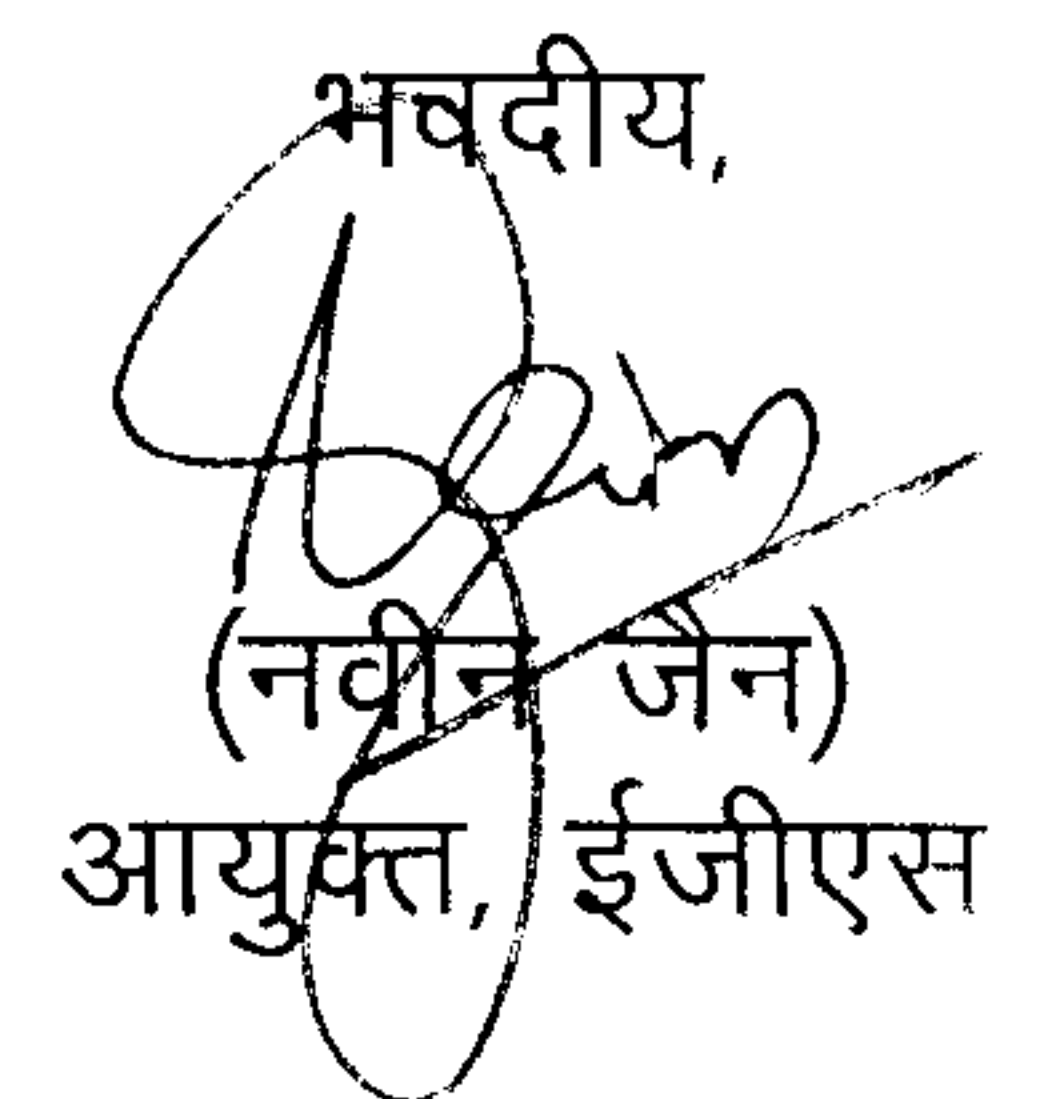 भवदीय,
(नवीन जैन)
आयुक्त, ईजीएस